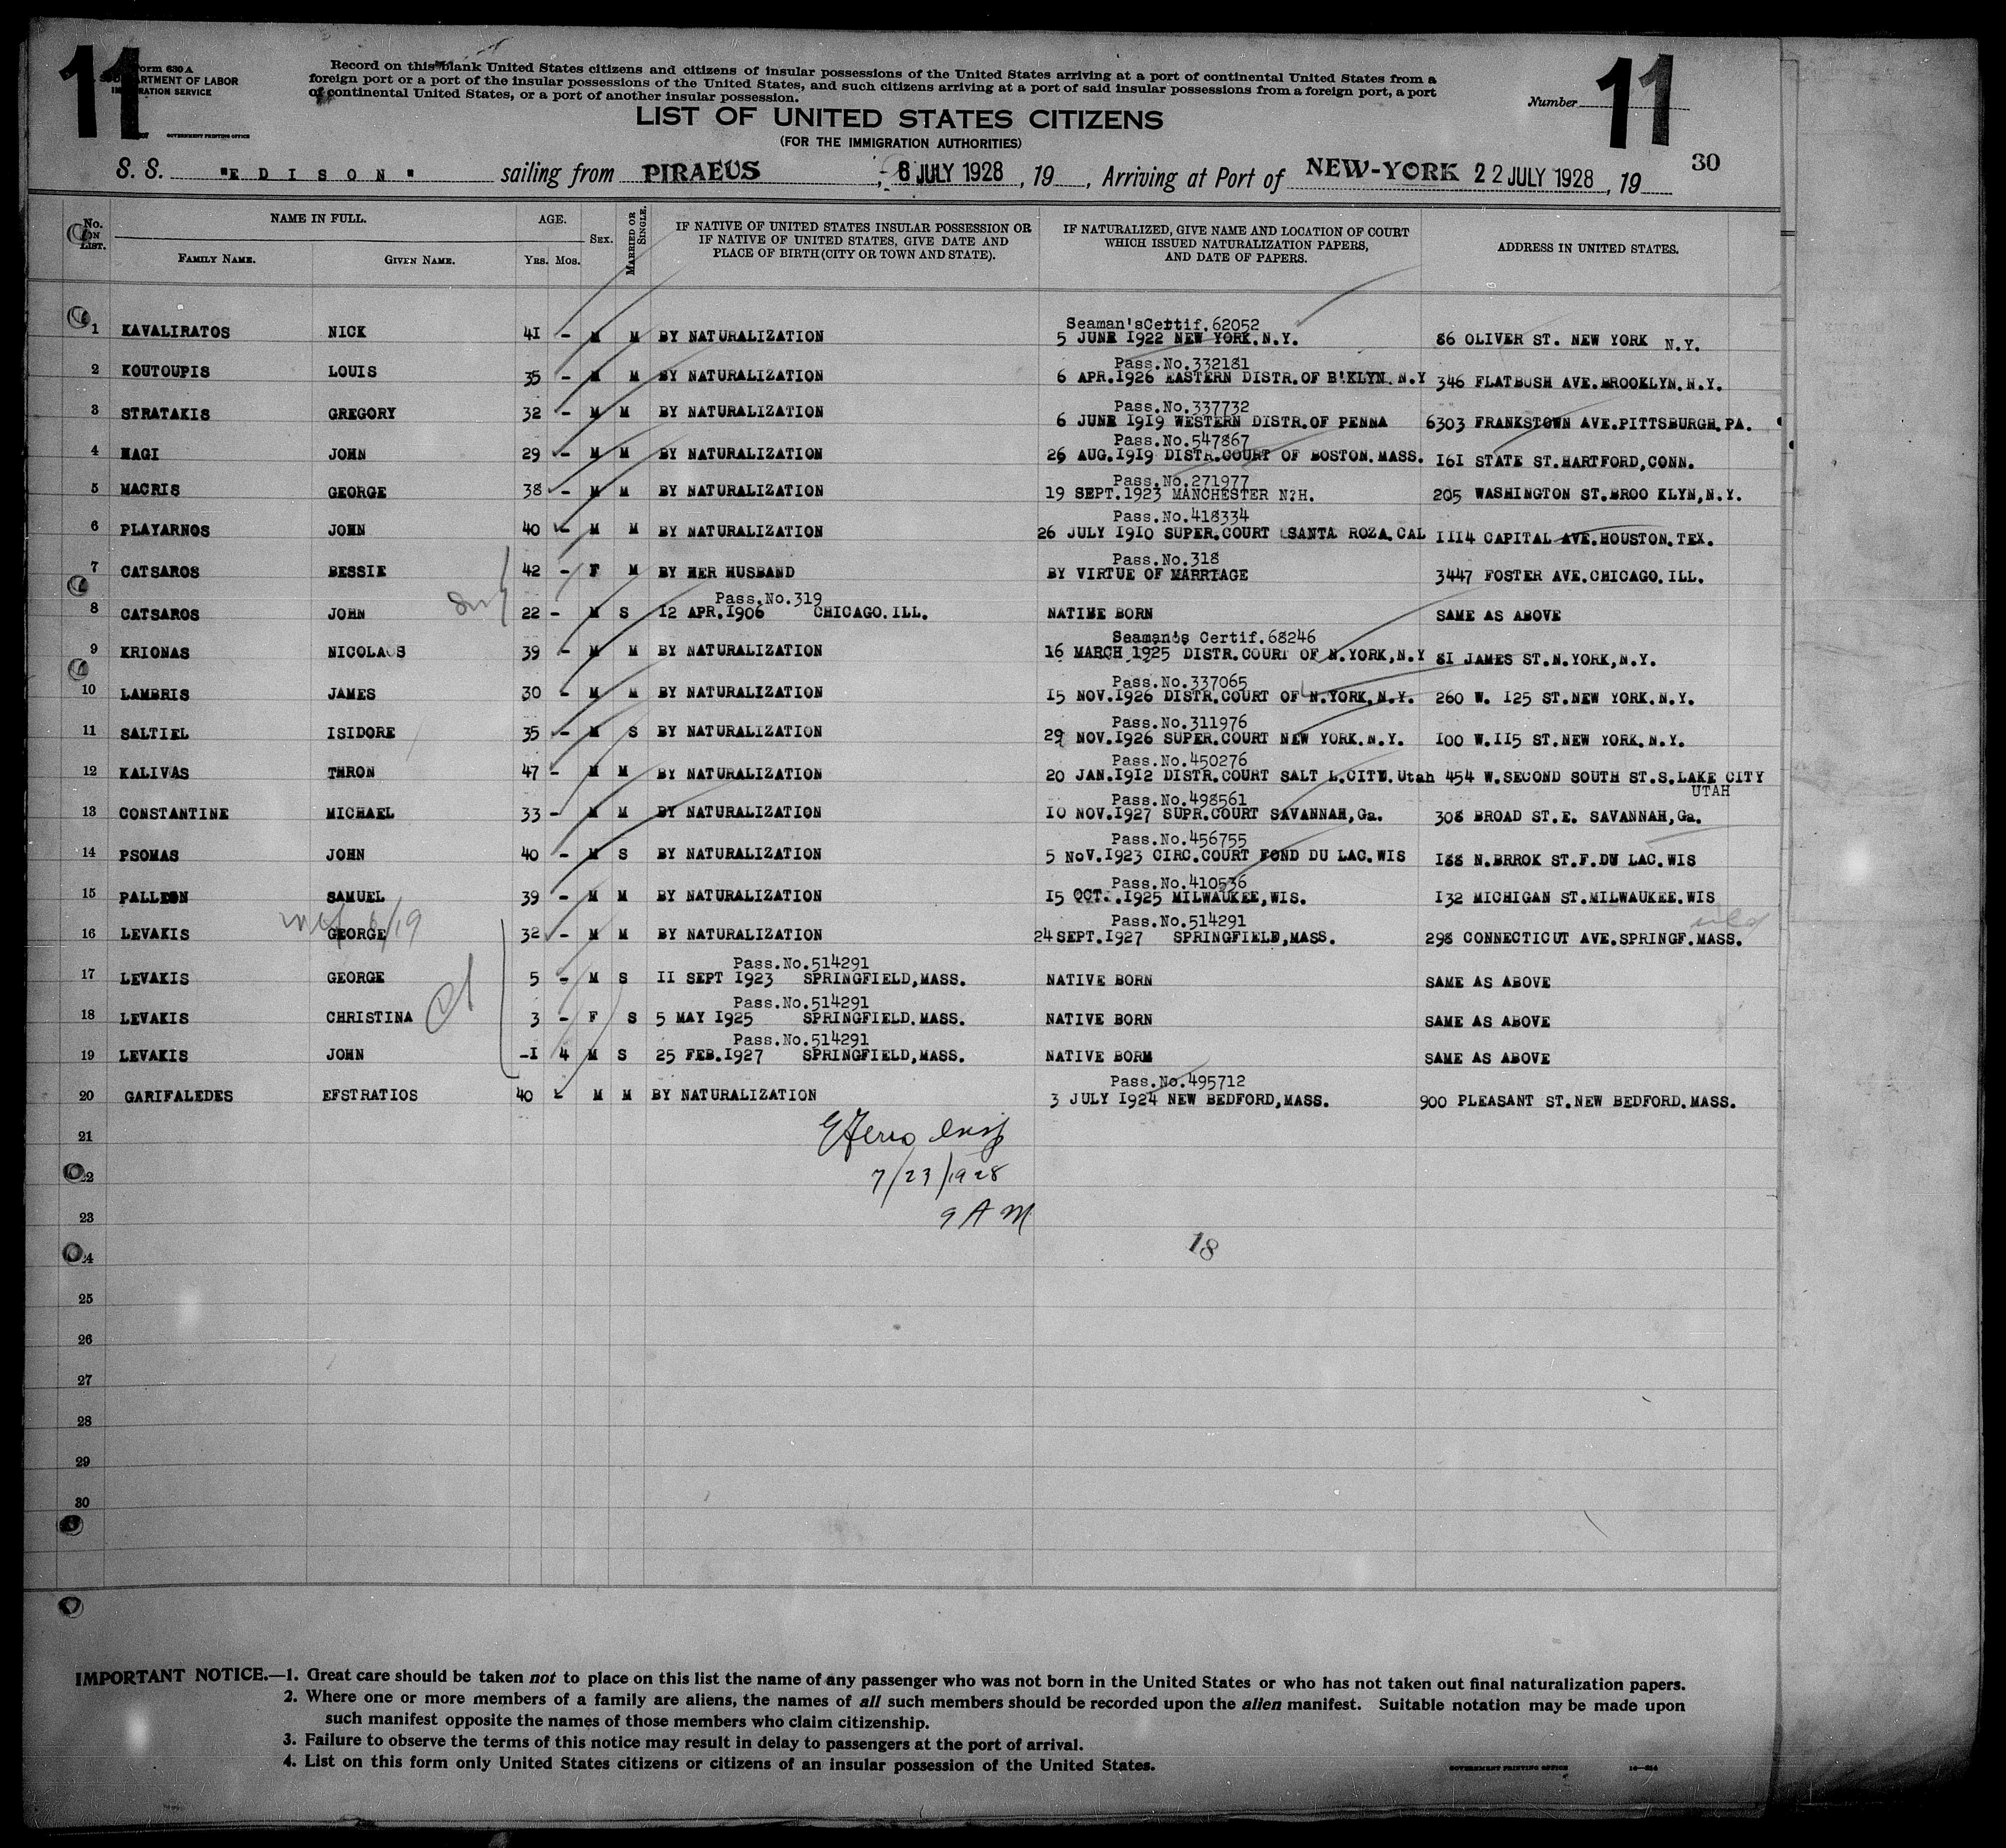 11
Form 630 A
DEPARTMENT OF LABOR
IMMIGRATION SERVICE
GOVERNMENT PRINTING OFFICE
Record on this blank United States citizens and citizens of insular possessions of the United States arriving at a port of continental United States from a
foreign port or a port of the insular possessions of the United States, and such citizens arriving at a port of said insular possessions from a foreign port, a port
of continental United States, or a port of another insular possession.
Number 11
LIST OF UNITED STATES CITIZENS
(FOR THE IMMIGRATION AUTHORITIES)
30
S. S. "EDISON" sailing from PIRAEUS, 6 JULY 1928, 19, Arriving at Port of NEW-YORK 22 JULY 1928, 19
No. ON LIST. NAME IN FULL. FAMILY NAME. GIVEN NAME. AGE. YRS. MOS. SEX. MARRIED OR SINGLE. IF NATIVE OF UNITED STATES INSULAR POSSESSION OR IF NATIVE OF UNITED STATES, GIVE DATE AND PLACE OF BIRTH (CITY OR TOWN AND STATE). IF NATURALIZED, GIVE NAME AND LOCATION OF COURT WHICH ISSUED NATURALIZATION PAPERS, AND DATE OF PAPERS. ADDRESS IN UNITED STATES.
Seaman'sCertif.62052
1 KAVALIRATOS NICK 41 - M M BY NATURALIZATION 5 JUNE 1922 NEW YORK.N.Y. 86 OLIVER ST. NEW YORK N.Y.
Pass.No.332181
2 KOUTOUPIS LOUIS 35 - M M BY NATURALIZATION 6 APR.1926 EASTERN DISTR.OF B'KLYN.N.Y 346 FLATBUSH AVE.BROOKLYN.N.Y.
Pass.No.337732
3 STRATAKIS GREGORY 32 - M M BY NATURALIZATION 6 JUNE 1919 WESTERN DISTR.OF PENNA 6303 FRANKSTOWN AVE.PITTSBURGH.PA.
Pass.No.547867
4 HAGI JOHN 29 - M M BY NATURALIZATION 26 AUG.1919 DISTR.COURT OF BOSTON.MASS. 161 STATE ST.HARTFORD,CONN.
Pass.No.271977
5 MACRIS GEORGE 38 - M M BY NATURALIZATION 19 SEPT.1923 MANCHESTER N?H. 205 WASHINGTON ST.BROO KLYN,N.Y.
Pass.No.418334
6 PLAYARNOS JOHN 40 - M M BY NATURALIZATION 26 JULY 1910 SUPER.COURT SANTA ROZA.CAL 1114 CAPITAL AVE.HOUSTON.TEX.
Pass.No.318
7 CATSAROS BESSIE 42 - F M BY HER HUSBAND BY VIRTUE OF MARRIAGE 3447 FOSTER AVE.CHICAGO.ILL.
Pass.No.319
8 CATSAROS JOHN 22 - M S 12 APR.1906 CHICAGO.ILL. NATIVE BORN SAME AS ABOVE
Seaman's Certif.68246
9 KRIONAS NICOLAOS 39 - M M BY NATURALIZATION 16 MARCH 1925 DISTR.COURT OF N.YORK,N.Y 81 JAMES ST.N.YORK,N.Y.
Pass.No.337065
10 LAMBRIS JAMES 30 - M M BY NATURALIZATION 15 NOV.1926 DISTR.COURT OF N.YORK.N.Y. 260 W. 125 ST.NEW YORK.N.Y.
Pass.No.311976
11 SALTIEL ISIDORE 35 - M S BY NATURALIZATION 29 NOV.1926 SUPER.COURT NEW YORK.N.Y. 100 W.115 ST.NEW YORK.N.Y.
Pass.No.450276
12 KALIVAS THRON 47 - M M BY NATURALIZATION 20 JAN.1912 DISTR.COURT SALT L.CITY.Utah 454 W.SECOND SOUTH ST.S.LAKE CITY
UTAH
Pass.No.498561
13 CONSTANTINE MICHAEL 33 - M M BY NATURALIZATION 10 NOV.1927 SUPR.COURT SAVANNAH,Ga. 308 BROAD ST.E. SAVANNAH,Ga.
Pass.No.456755
14 PSOMAS JOHN 40 - M S BY NATURALIZATION 5 NoV.1923 CIRC.COURT FOND DU LAC.WIS 188 N.BRROK ST.F.DU LAC.WIS
Pass.No.410536
15 PALLEON SAMUEL 39 - M M BY NATURALIZATION 15 OCT..1925 MILWAUKEE,WIS. 132 MICHIGAN ST.MILWAUKEE.WIS
Pass.No.514291
16 LEVAKIS GEORGE 32 - M M BY NATURALIZATION 24 SEPT.1927 SPRINGFIELD,MASS. 298 CONNECTICUT AVE.SPRINGF.MASS.
Pass.No.514291
17 LEVAKIS GEORGE 5 - M S 11 SEPT 1923 SPRINGFIELD,MASS. NATIVE BORN SAME AS ABOVE
Pass.No.514291
18 LEVAKIS CHRISTINA 3 - F S 5 MAY 1925 SPRINGFIELD.MASS. NATIVE BORN SAME AS ABOVE
Pass.No.514291
19 LEVAKIS JOHN -1 4 M S 25 FEB.1927 SPRINGFIELD,MASS. NATIVE BORN SAME AS ABOVE
Pass.No.495712
20 GARIFALEDES EFSTRATIOS 40 M M BY NATURALIZATION 3 JULY 1924 NEW BEDFORD,MASS. 900 PLEASANT ST.NEW BEDFORD.MASS.
21
7/23/1928
22
23
9 AM
18
24
25
26
27
28
29
30
IMPORTANT NOTICE.—1. Great care should be taken not to place on this list the name of any passenger who was not born in the United States or who has not taken out final naturalization papers.
2. Where one or more members of a family are aliens, the names of all such members should be recorded upon the alien manifest. Suitable notation may be made upon
such manifest opposite the names of those members who claim citizenship.
3. Failure to observe the terms of this notice may result in delay to passengers at the port of arrival.
4. List on this form only United States citizens or citizens of an insular possession of the United States.
GOVERNMENT PRINTING OFFICE